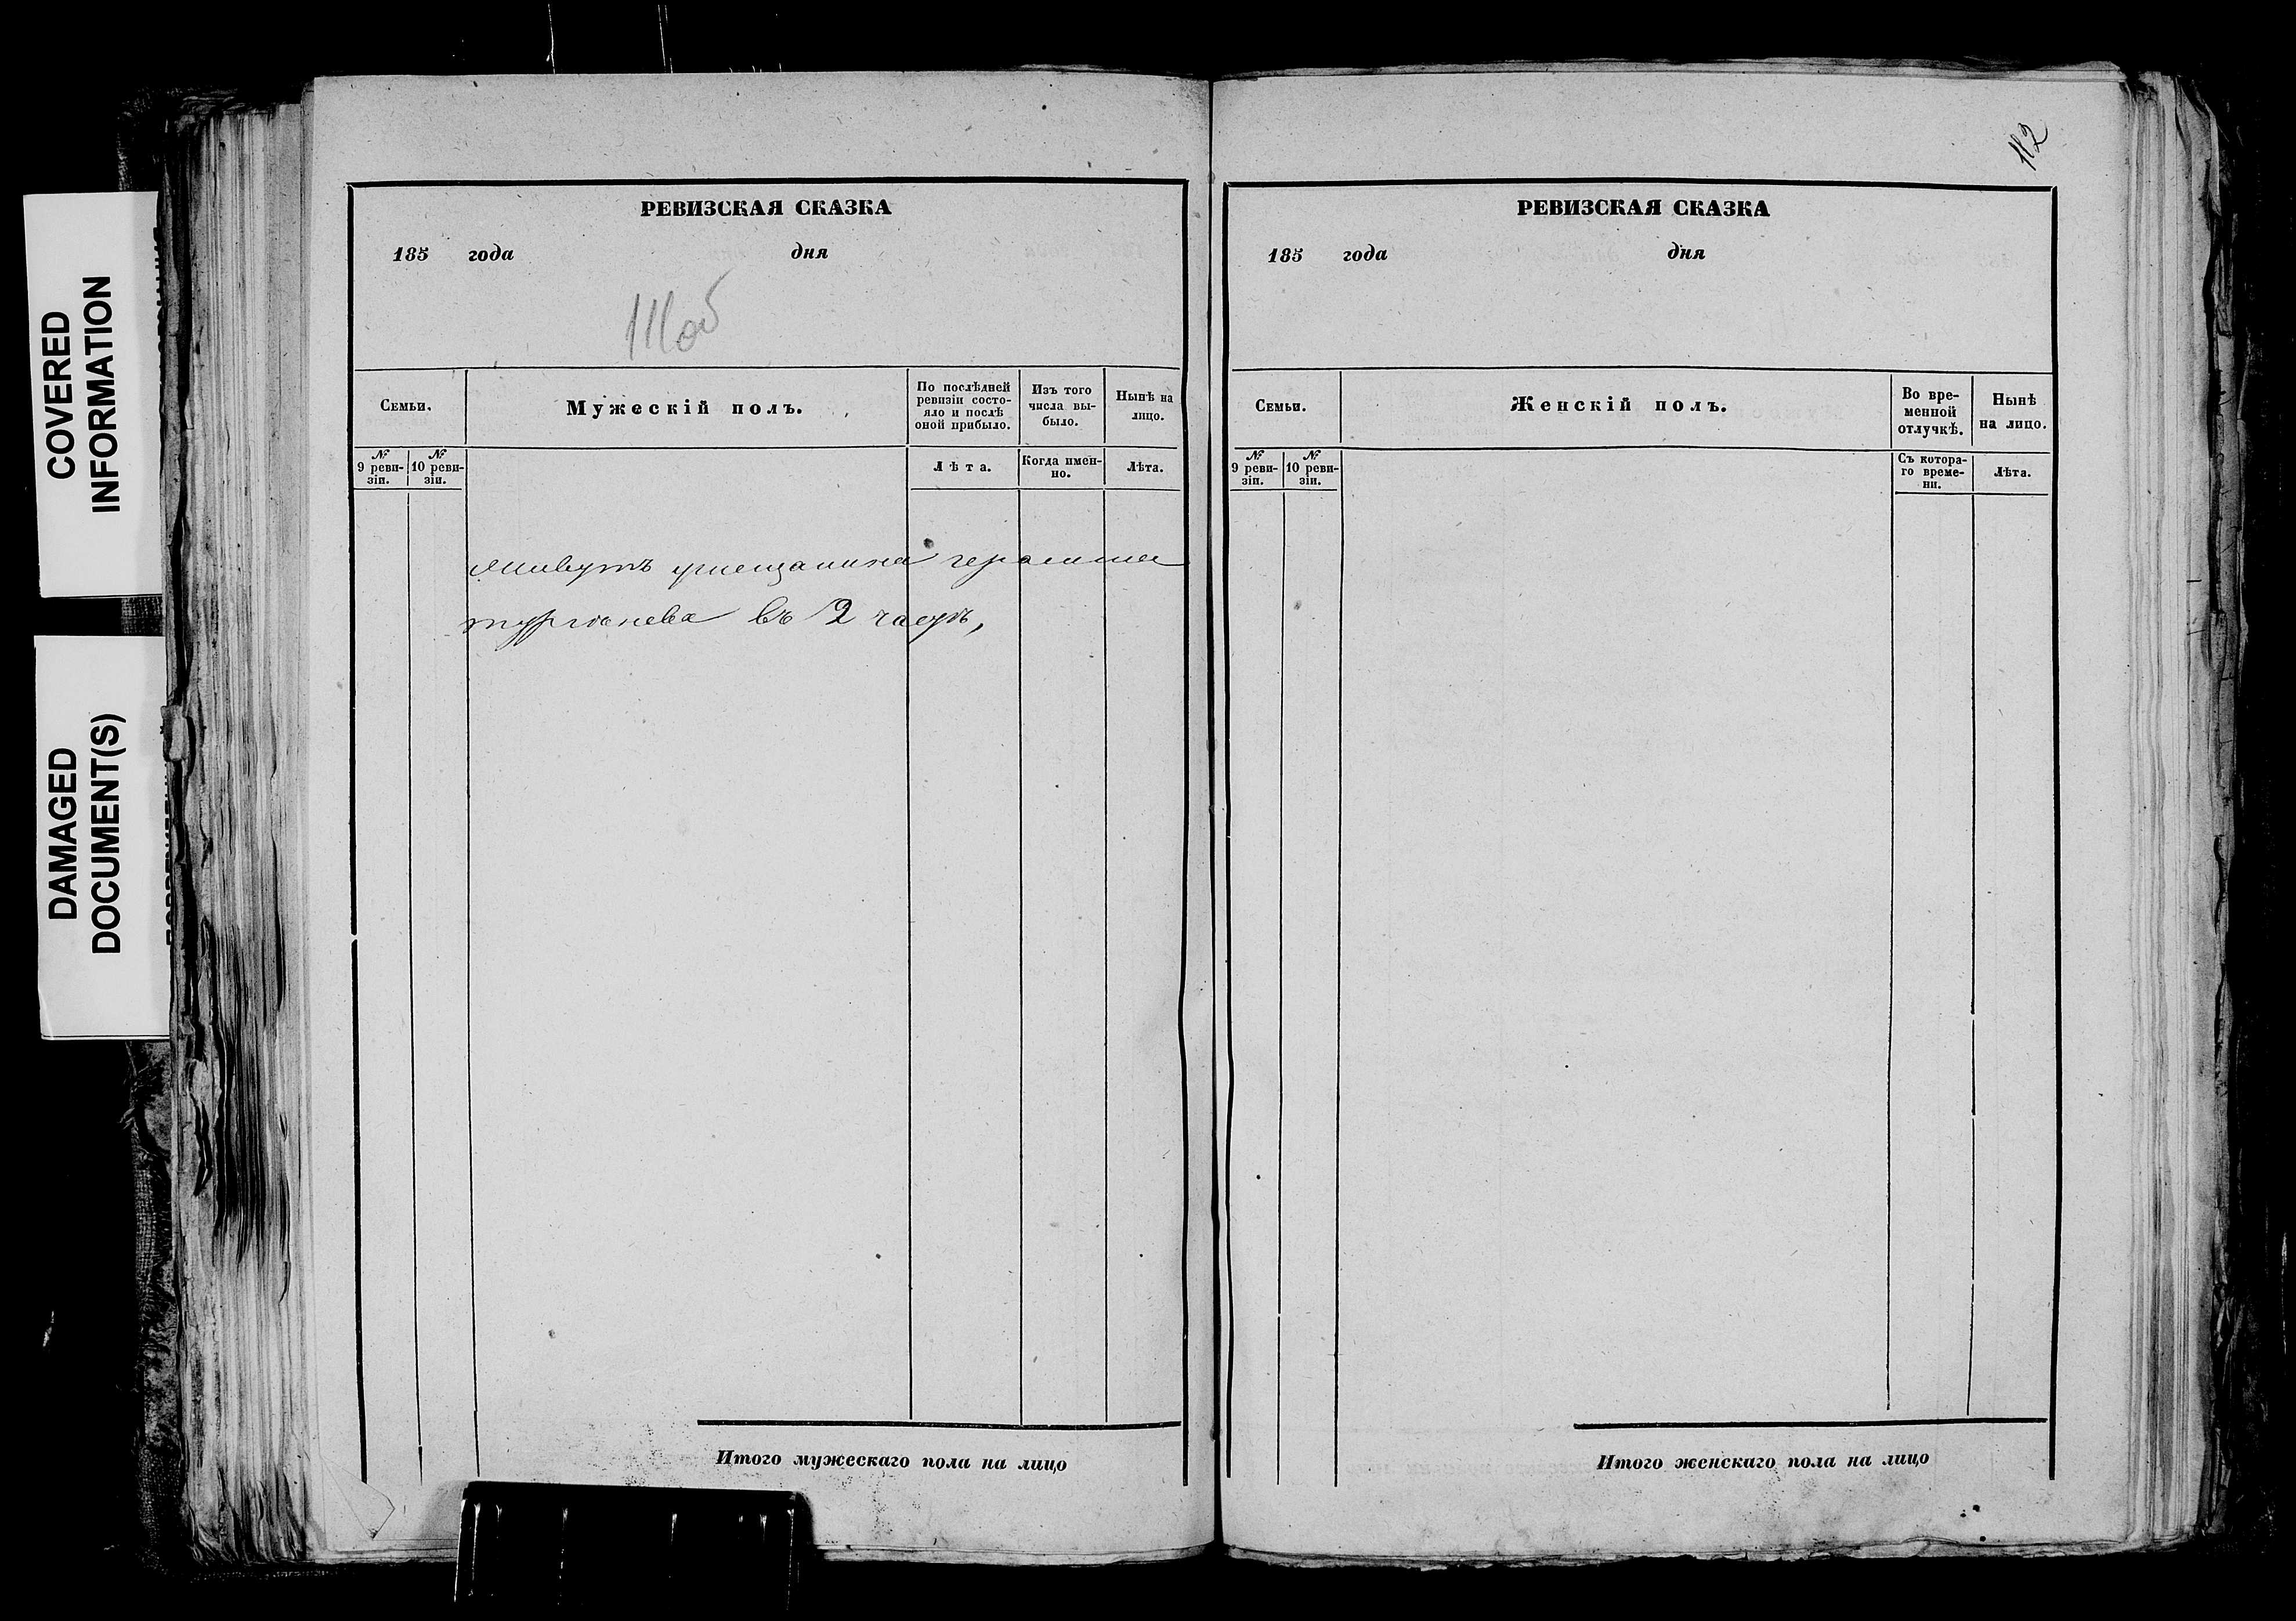 COVERED
INFORMATION
DAMAGED
DOCUMENT(S)
РЕВИЗСКАЯ СКАЗКА
185 года дня
111 об
Семьи.
Мужескій полъ.
По послѣдней
ревизіи состо-
яло и послѣ
оной прибыло.
Изъ того
числа вы-
было.
Нынѣ на
лицо.
№
9 реви-
зіи.
№
10 реви-
зіи.
Лѣта.
Когда имен-
но.
Лѣта.
живутъ умещанина
въ 2 часть,
Итого мужескаго пола на лицо
112
РЕВИЗСКАЯ СКАЗКА
185 года дня
Семьи.
Женскій полъ.
Во вре-
менной
отлучкѣ.
Нынѣ
на лицо.
№
9 реви-
зіи.
№
10 реви-
зіи.
Съ котора-
го време-
ни.
Лѣта.
Итого женскаго пола на лицо